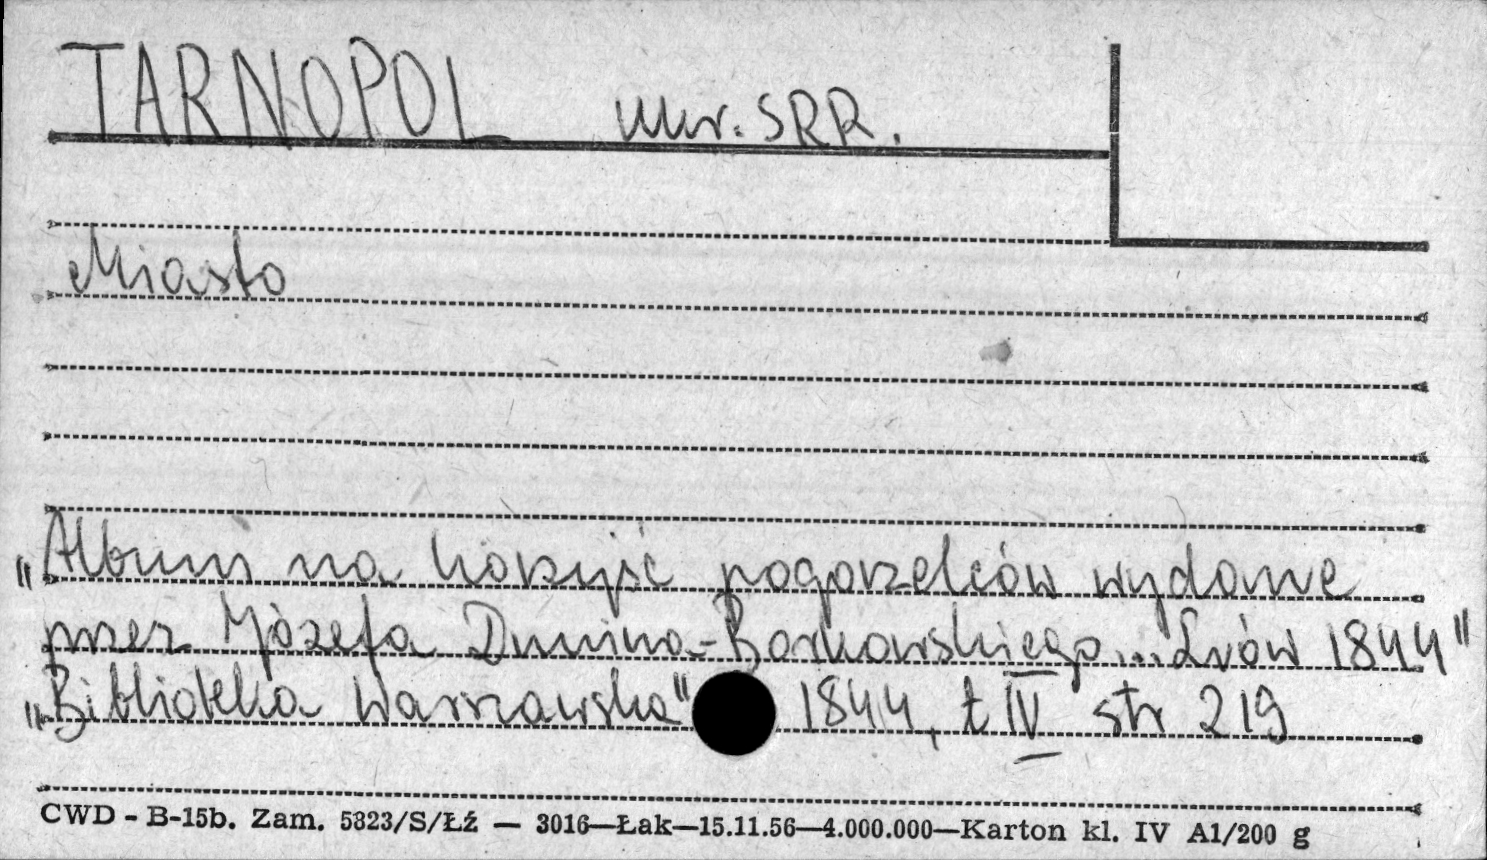 TARNOPOL Ukr. SRR.
Miasto
"Album na korzyść pogorzelców wydane
przez Józefa Dunina-Borkowskiego... Lwów 1844"
"Biblioteka Warszawska" 1844, t IV str 219
CWD - B-15b. Zam. 5323/S/Łź — 3016—Łak—15.11.56—4.000.000—Karton kl. IV A1/200 g